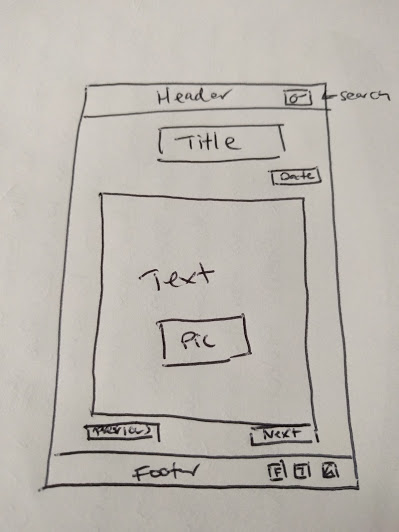 Header
search
Title
Date
Text
Pic
Previous Next
Footer F T